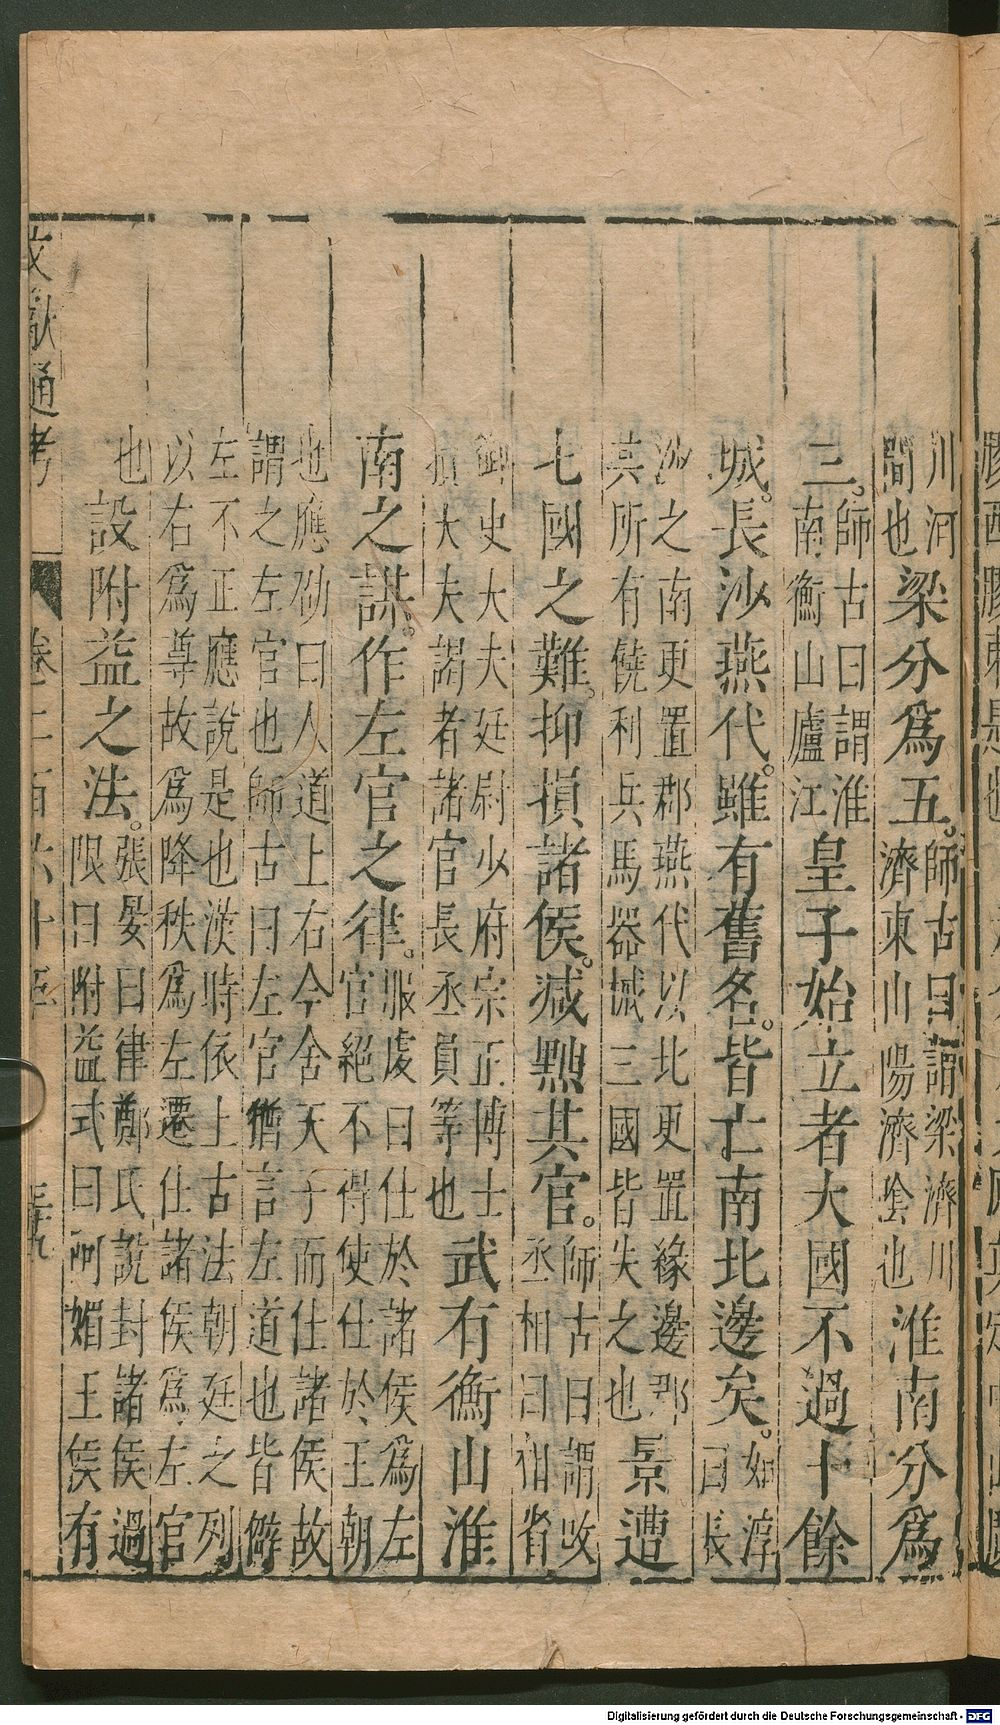 川河
間也
梁分爲五。
師古曰謂梁濟川
濟東山陽濟陰也
淮南分爲
三。
師古曰謂淮
南衡山廬江
皇子始立者大國不過十餘
城。長沙燕代。雖有舊名。皆亡南北邊矣。
如淳
曰長
沙之南更置郡燕代以北更置緣邊郡
其所有饒利兵馬器械三國皆失之也
景遭
七國之難。抑損諸侯。減黜其官。
師古曰謂改
丞相曰相省
御史大夫廷尉少府宗正博士
損大夫謁者諸官長丞員等也
武有衡山淮
南之謀。作左官之律。
服虔曰仕於諸侯爲左
官絕不得使仕於王朝
也應劭曰人道上右今舍天子而仕諸侯故
謂之左官也師古曰左官猶言左道也皆僻
左不正應說是也漢時依上古法朝廷之列
以右爲尊故爲降秩爲左遷仕諸侯爲左官
也
設附益之法。
張晏曰律鄭氏說封諸侯過
限曰附益式曰阿媚王侯有
文獻通考
卷二百六十五
Digitalisierung gefördert durch die Deutsche Forschungsgemeinschaft - DFG